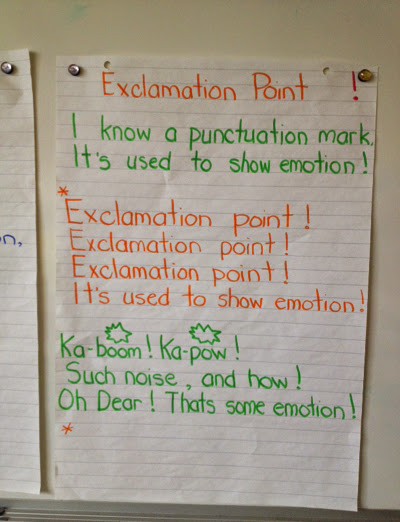 Exclamation Point !
I know a punctuation mark.
It's used to show emotion!
*
Exclamation point!
Exclamation point!
Exclamation point!
It's used to show emotion!
Ka-boom! Ka-pow!
Such noise, and how!
Oh Dear! Thats some emotion!
*